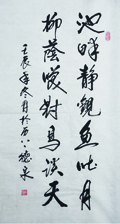 池畔静观鱼吐月
柳荫嗳对鸟谈天
壬辰年冬月於石八德泉